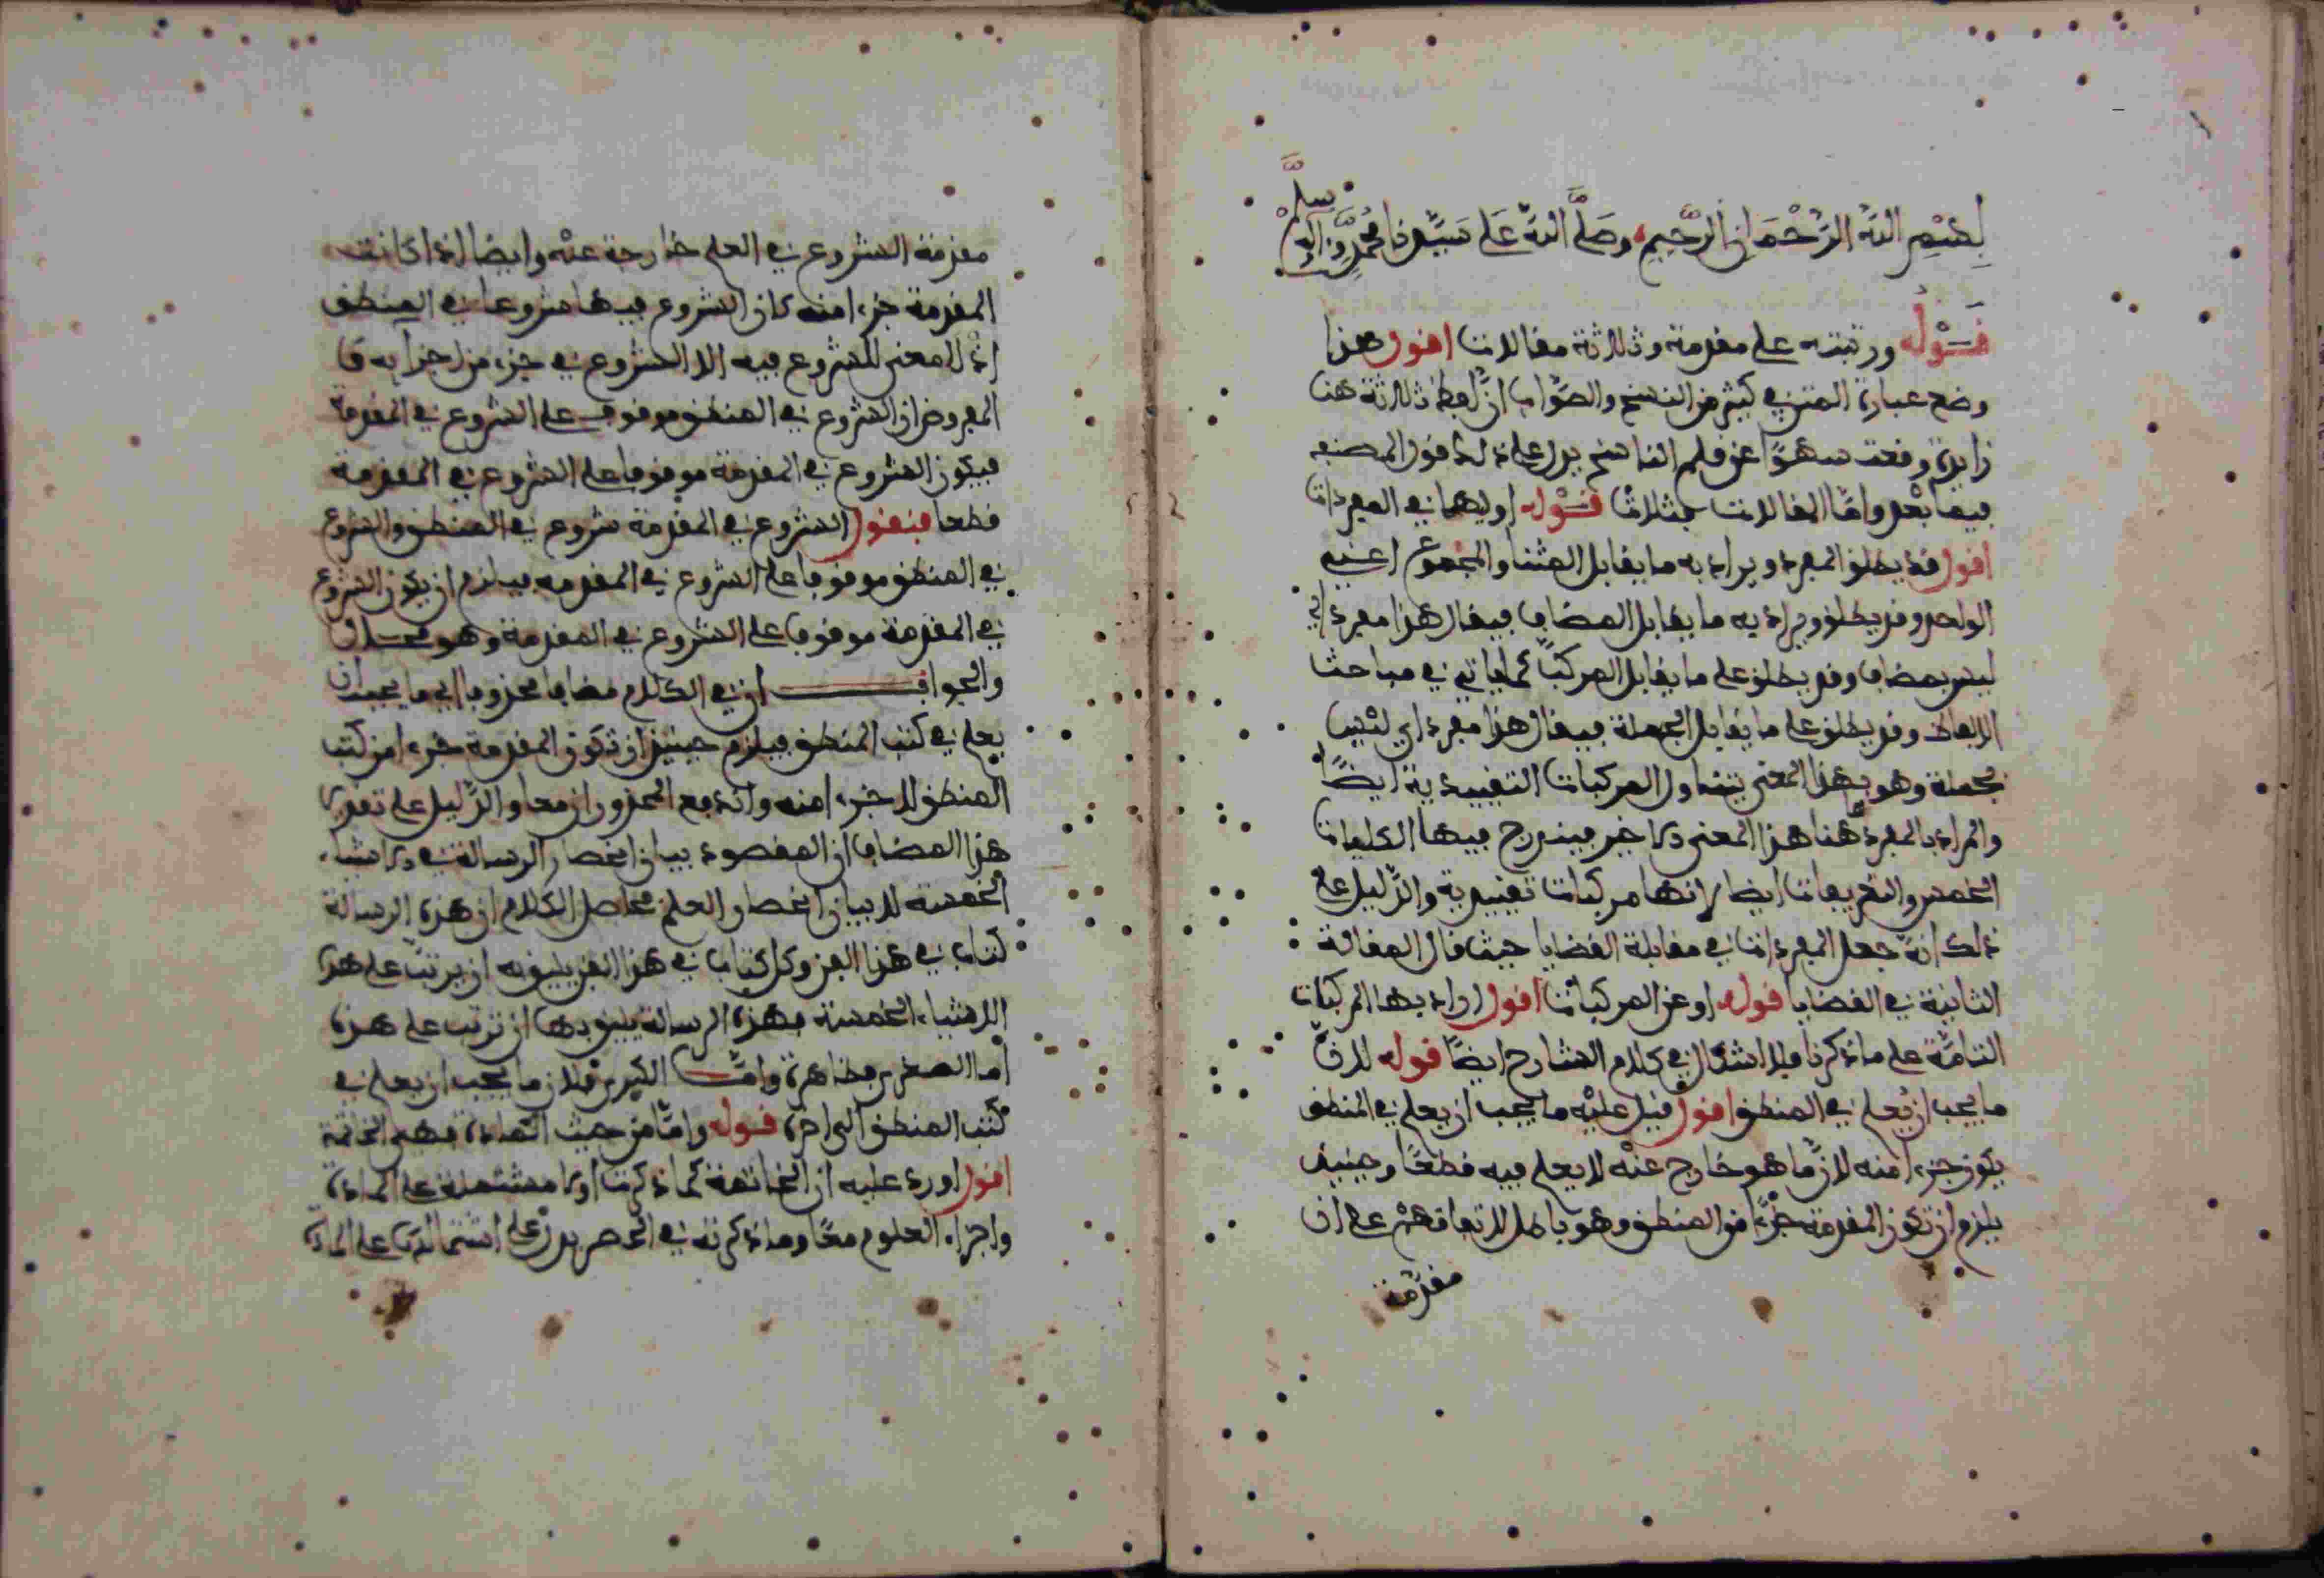 بسم الله الرحمان الرحيم وصلى الله على سيدنا محمد وءاله وسلم
قوله ورتبته على مقدمة وثلاثة مقالات اقول هكذا
وضع عبارة المتن في كثير من النسخ والصواب ان لفظ ثلاثة هنا
زايدة وقعت سهوا عن قلم الناسخ يدل على ذلك قول المصنف
فيما بعد واما المقالات فثلاث قوله اوليها في المفردات
اقول قد يطلق المفرد ويراد به ما يقابل المثنا والمجموع اعني
الواحد وقد يطلق ويراد به ما يقابل المضاف فيقال هذا مفرد اي
ليس بمضاف وقد يطلق على ما يقابل المركب كما ياتي في مباحث
الالفاظ وقد يطلق على ما يقابل الجملة فيقال هذا مفرد اي ليس
بجملة وهو بهذا المعنى يتناول المركبات التقييدية ايضا
والمراد بالمفرد هنا هذا المعنى الاخير فيندرج فيها الكليات
الخمس والتعريفات ايضا لانها مركبات تقييدية والدليل على
ذلك انه جعل المفردات في مقابلة القضايا حيث قال المقالة
الثانية في القضايا قوله او عن المركبات اقول اراد بها المركبات
التامة على ما ذكرنا فلا اشكال في كلام الشارح ايضا قوله لان
ما يجب ان يعلم في المنطق اقول قيل عليه ما يجب ان يعلم في المنطق
يكون جزءا منه لان ما هو خارج عنه لا يعلم فيه قطعا وحينيذ
يلزم ان تكون المقدمة جزءا من المنطق وهو باطل لاتفاقهم على ان
مقدمة
مقدمة الشروع في العلم خارجة عنه وايضا اذا كانت
المقدمة جزءا منه كان الشروع فيها شروعا في المنطق
اذ لا معنى للشروع فيه الا الشروع في جزء من اجزايه و
المفروض ان الشروع في المنطق موقوف على الشروع في المقدمة
فيكون الشروع في المقدمة موقوفا على الشروع في المقدمة
قطعا فنقول الشروع في المقدمة شروع في المنطق والشروع
في المنطق موقوفا على الشروع في المقدمة فيلزم ان يكون الشروع
في المقدمة موقوفا على الشروع في المقدمة وهو محال
والجواب ان في الكلام مضافا محذوفا اي ما يجب ان
يعلم في كتب المنطق فيلزم حينيذ ان تكون المقدمة جزءا من كتب
المنطق لا جزءا منه واندفع المحذوران معا والدليل على تقدير
هذا المضاف ان المقصود بيان انحصار الرسالة في الاشياء
الخمسة لا بيان انحصار العلم فحاصل الكلام ان هذه الرسالة
كتاب في هذا الفن وكل كتاب في هذا الفن يليق به ان يرتب على هذه
الاشياء الخمسة فهذه الرسالة يليق بها ان ترتب على هذه
اما الصغرى فظاهرة واما الكبرى فلان ما يجب ان يعلم في
كتب المنطق الى اخره قوله واما من حيث المادة فهي الخاتمة
اقول اورد عليه ان الخاتمة كما ذكرت اولا مشتملة على المادة
واجزاء العلوم معا وما ذكرته في الحصر يدل على اشتمالها على المادة